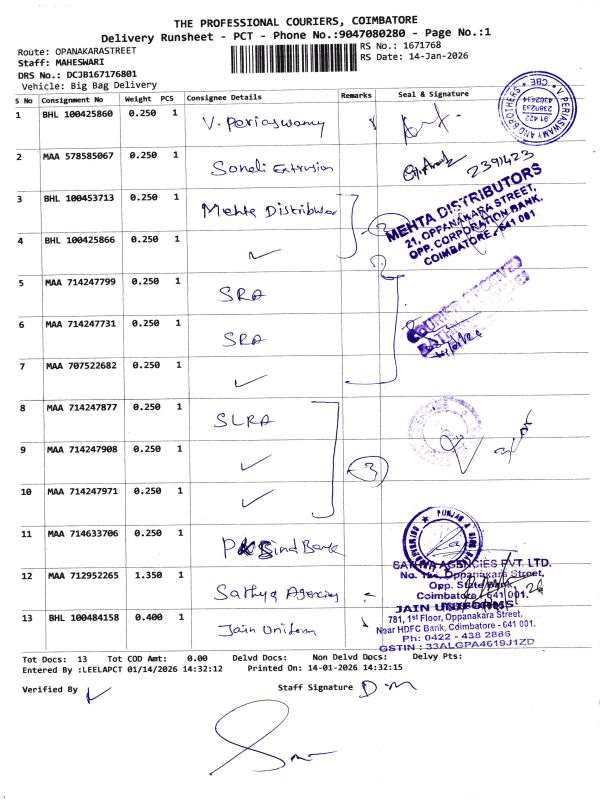 THE PROFESSIONAL COURIERS, COIMBATORE
Delivery Runsheet - PCT - Phone No.:9047080280 - Page No.:1
Route: OPANAKARASTREET
RS No.: 1671768
Staff: MAHESWARI
RS Date: 14-Jan-2026
DRS No.: DCJB167176801
Vehicle: Big Bag Delivery
S No Consignment No Weight PCS Consignee Details Remarks Seal & Signature
1 BHL 100425860 0.250 1 V. Periaswamy
V PERIASWAMY AND BROTHERS * CBE *
91 422
2380233
4362634
2 MAA 578585067 0.250 1 Sonali Extrusion
2391423
3 BHL 100453713 0.250 1 Mehta Distributor
MEHTA DISTRIBUTORS
21, OPPANAKARA STREET,
OPP. CORPORATION BANK,
COIMBATORE - 641 001
4 BHL 100425866 0.250 1 ✓
5 MAA 714247799 0.250 1 SRA
COURIER RECEIVED
6 MAA 714247731 0.250 1 SRA
7 MAA 707522682 0.250 1 ✓
8 MAA 714247877 0.250 1 SLRA
9 MAA 714247908 0.250 1 ✓
3
10 MAA 714247971 0.250 1 ✓
11 MAA 714633706 0.250 1 P&Sind Bank
PUNJAB &
SATHYA AGENCIES PVT. LTD.
No. Oppanakara Street,
Opp. State Bank
Coimbatore - 641 001.
12 MAA 712952265 1.350 1 Sathya Agencies
13 BHL 100484158 0.400 1 Jain Uniform
JAIN UNIFORMS
781, 1st Floor, Oppanakara Street,
Near HDFC Bank, Coimbatore - 641 001.
Ph: 0422 - 438 2886
GSTIN : 33ALGPA4619J1ZD
Tot Docs: 13 Tot COD Amt: 0.00 Delvd Docs: Non Delvd Docs: Delvy Pts:
Entered By :LEELAPCT 01/14/2026 14:32:12 Printed On: 14-01-2026 14:32:15
Verified By
Staff Signature